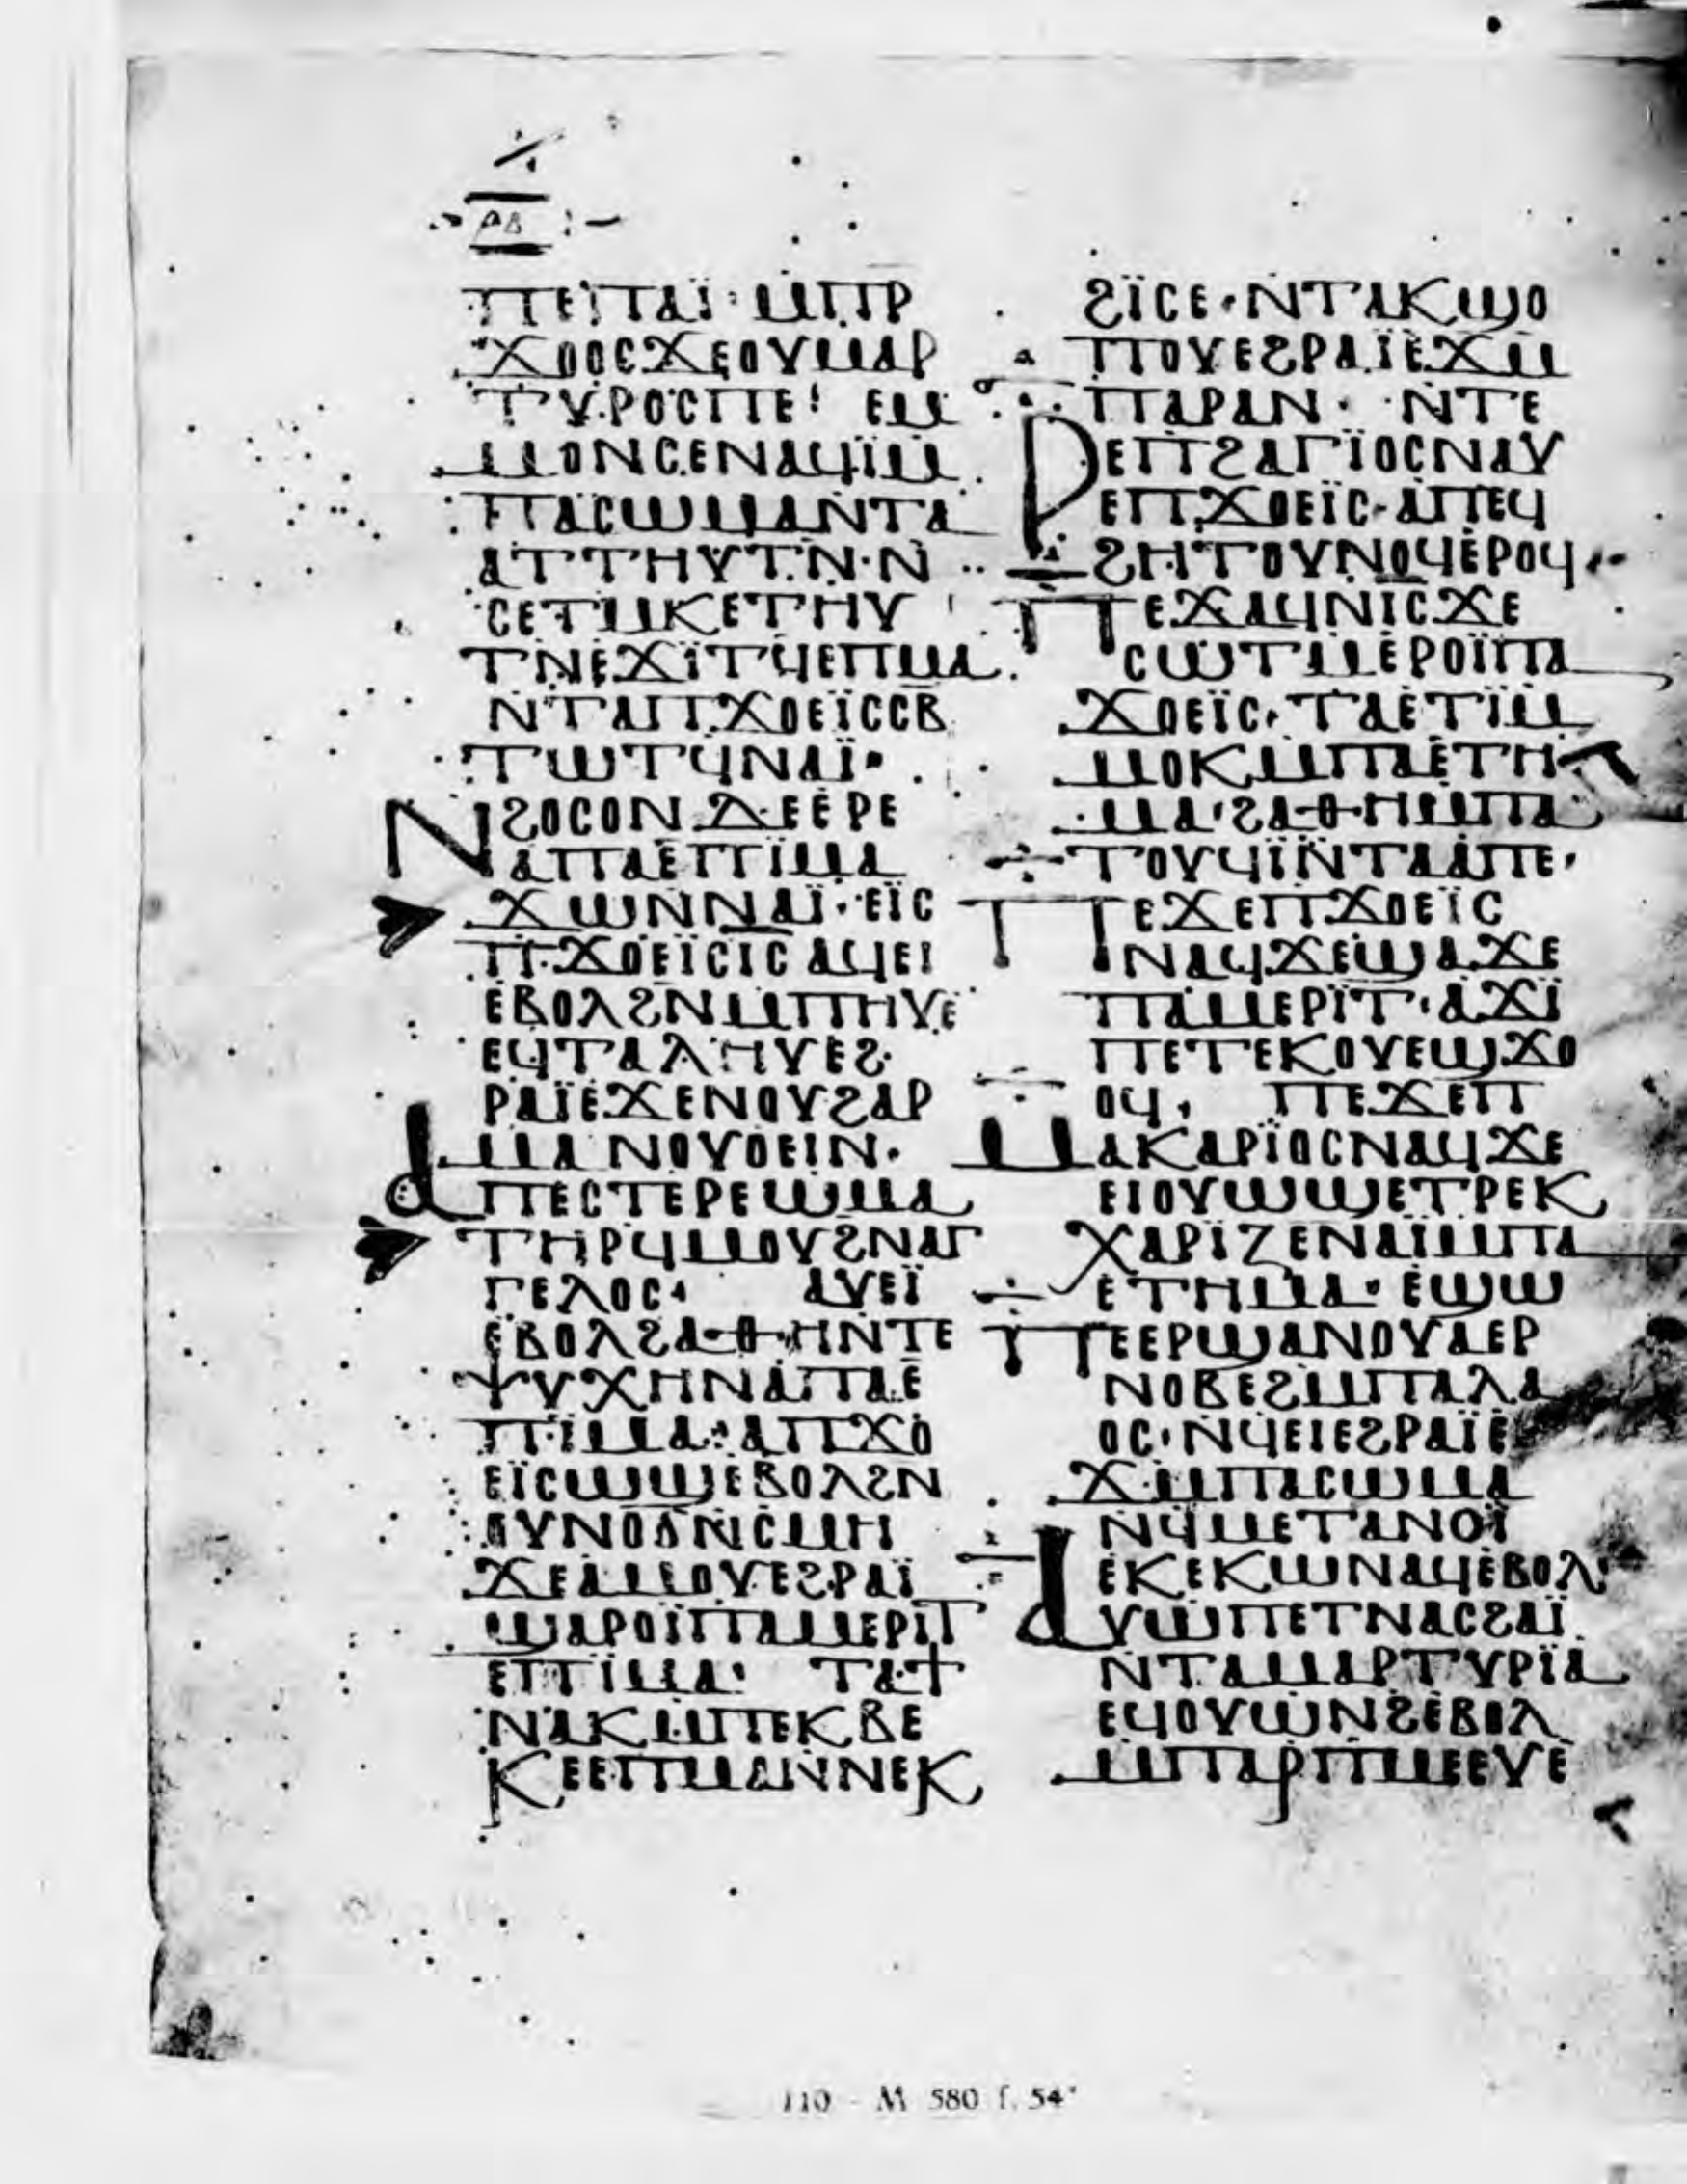 ⲣⲃ
ⲡⲉⲓⲡⲁⲓ̈· ⲙ̀ⲡⲣ
ϫⲟⲟⲥϫⲉⲟⲩⲙⲁⲣ
ⲧⲩⲣⲟⲥⲡⲉ· ⲉⲙ
ⲙⲟⲛⲥⲉⲛⲁϥⲓ̈ⲙ̀
ⲡⲁⲥⲱⲙⲁⲛ̀ⲧⲁ
ⲁⲧⲧⲏⲩⲧⲛ̀·ⲛ̀
ⲥⲉⲧⲙ̀ⲕⲉⲧⲏⲩ
ⲧⲛ̀ⲉ̀ϫⲓ̈ⲧϥ̀ⲉⲡⲙⲁ
ⲛ̀ⲧⲁⲡϫⲟⲉⲓ̈ⲥⲥⲃ
ⲧⲱⲧϥ̀ⲛⲁⲓ̈·
ⲛ̀ϩⲟⲥⲟⲛ ⲇⲉⲉ̀ⲣⲉ
ⲁⲡⲁⲉ̀ⲡⲓⲙⲁ
ϫⲱⲛ̀ⲛⲁⲓ̈· ⲉⲓ̈ⲥ
ⲡϫⲟⲉⲓ̈ⲥⲓ̅ⲥ̅ ⲁϥⲉⲓ
ⲉ̀ⲃⲟⲗϩⲛ̀ⲙ̀ⲡⲏⲩⲉ̀
ⲉϥⲧⲁⲗⲏⲩⲉϩ
ⲣⲁⲓ̈ⲉ̀ϫⲉⲛⲟⲩϩⲁⲣ
ⲙⲁ ⲛⲟⲩⲟⲉⲓⲛ·
ⲁⲡⲉⲥⲧⲉⲣⲉⲱⲙⲁ
ⲧⲏⲣϥ̀ⲙⲟⲩϩⲛⲁⲅ
ⲅⲉⲗⲟⲥ· ⲁⲩⲉⲓ̈
ⲉ̀ⲃⲟⲗϩⲁⲑⲏⲛ̀ⲧⲉ
ⲯⲩⲭⲏⲛ̀ⲁⲡⲁⲉ̀
ⲡⲓⲙⲁ· ⲁⲡϫⲟ
ⲉⲓ̈ⲥⲱϣⲉ̀ⲃⲟⲗϩⲛ̀
ⲟⲩⲛⲟϭⲛ̀ⲥⲙⲏ
ϫⲉⲁⲙⲟⲩⲉϩⲣⲁⲓ̈
ϣⲁⲣⲟⲓ̈ⲡⲁⲙⲉⲣⲓⲧ
ⲉⲡⲓⲙⲁ· ⲧⲁϯ
ⲛⲁⲕⲙ̀ⲡⲉⲕⲃⲉ
ⲕⲉⲉⲡⲙⲁⲛ̀ⲛⲉⲕ
ϩⲓ̈ⲥⲉ· ⲛ̀ⲧⲁⲕϣⲟ
ⲡⲟⲩⲉϩⲣⲁⲓ̈ⲉ̀ϫⲙ̀
ⲡⲁⲣⲁⲛ· ⲛ̀ⲧⲉ
ⲣⲉⲡϩⲁⲅⲓ̈ⲟⲥⲛⲁⲩ
ⲉⲡϫⲟⲉⲓ̈ⲥ· ⲁⲡⲉϥ
ϩⲏⲧⲟⲩⲛⲟϥⲉⲣⲟϥ·
ⲡⲉϫⲁϥⲛ̀ⲓ̅ⲥ̅ϫⲉ
ⲥⲱⲧⲙ̀ⲉ̀ⲣⲟⲓ̈ⲡⲁ
ϫⲟⲉⲓ̈ⲥ· ⲧⲁⲉ̀ⲧⲓ̈ⲙ̀
ⲙⲟⲕⲙ̀ⲡⲁⲉ̀ⲧⲏ
ⲙⲁ· ϩⲁⲑⲏⲙ̀ⲡⲁ
ⲧⲟⲩϥⲓ̈ⲛ̀ⲧⲁⲁ̀ⲡⲉ·
ⲡⲉϫⲉⲡϫⲟⲉⲓ̈ⲥ
ⲛⲁϥϫⲉϣⲁϫⲉ
ⲡⲁⲙⲉⲣⲓ̈ⲧ· ⲁϫⲓ̈
ⲡⲉⲧⲉⲕⲟⲩⲉϣϫⲟ
ⲟϥ· ⲡⲉϫⲉⲡ
ⲙⲁⲕⲁⲣⲓ̈ⲟⲥⲛⲁϥϫⲉ
ⲉⲓⲟⲩⲱϣⲉⲧⲣⲉⲕ
ⲭⲁⲣⲓ̈ⲍⲉⲛⲁⲓ̈ⲙ̀ⲡⲁ
ⲉ̀ⲧⲏⲙⲁ· ⲉϣⲱ
ⲡⲉⲉⲣϣⲁⲛⲟⲩⲁⲉⲣ
ⲛⲟⲃⲉϩⲙ̀ⲡⲁⲗⲁ
ⲟⲥ· ⲛ̀ϥⲉⲓⲉϩⲣⲁⲓ̈ⲉ̀
ϫⲙ̀ⲡⲁⲥⲱⲙⲁ
ⲛ̀ϥⲙⲉⲧⲁⲛⲟⲓ̈
ⲉⲕⲉⲕⲱⲛⲁϥⲉ̀ⲃⲟⲗ·
ⲁⲩⲱⲡⲉⲧⲛⲁⲥϩⲁⲓ̈
ⲛ̀ⲧⲁⲙⲁⲣⲧⲩⲣⲓ̈ⲁ
ⲉϥⲟⲩⲱⲛϩⲉ̀ⲃⲟⲗ
ⲙ̀ⲡⲁⲣⲡⲙⲉⲉⲩⲉ̀
110 - M 580 f. 54ᵛ